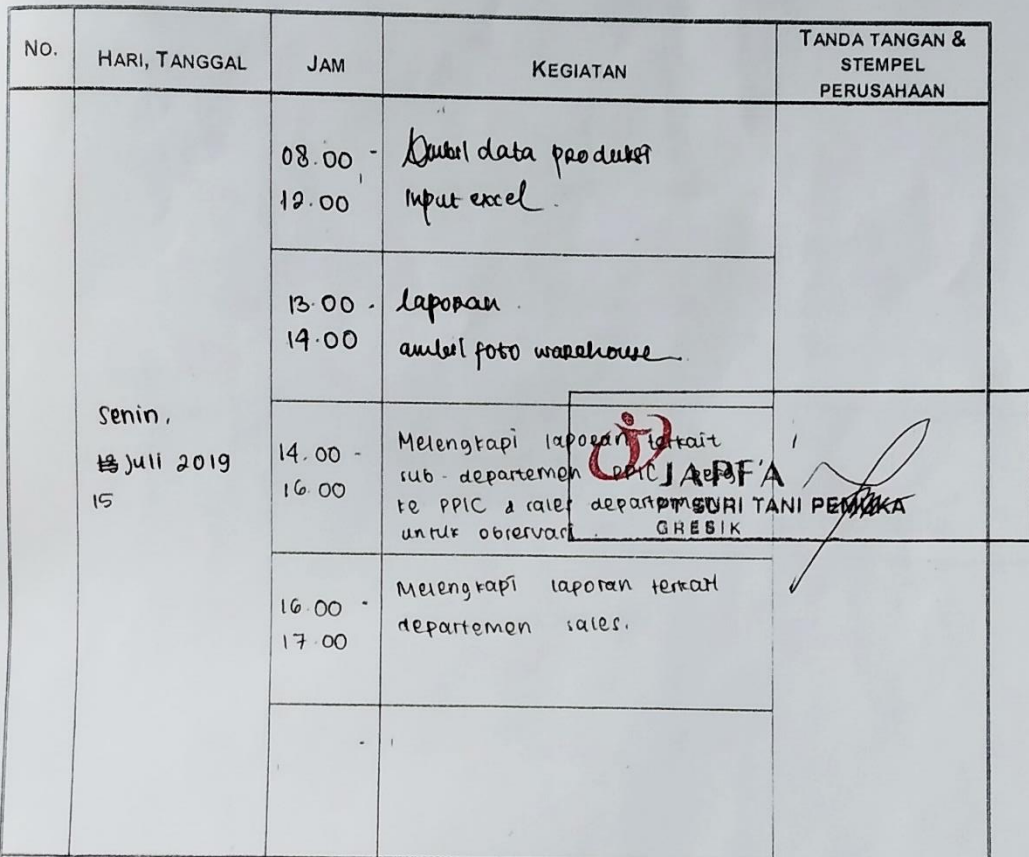 No.
HARI, TANGGAL
JAM
KEGIATAN
TANDA TANGAN &
STEMPEL
PERUSAHAAN
Senin,
Juli 2019
15
08.00 - Ambil data produksi
12.00 Input excel.
13.00 - laporan.
14.00 ambil foto warehouse
14.00 - Melengkapi laporan terkait
16.00 sub-departemen PPIC
ke PPIC & sales departemen
untuk observasi
JAPFA
PT SURI TANI PEMUKA
GRESIK
16.00 - Melengkapi laporan terkait
17.00 departemen sales.